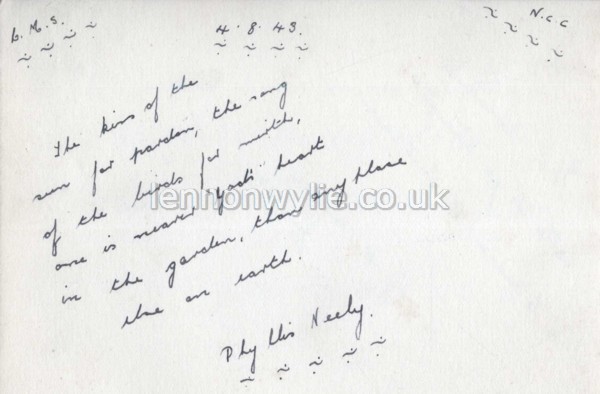 L.M.S. 4.8.43. N.C.C
The kiss of the
sun for pardon, the song
of the birds for mirth,
one is nearer "God's" heart
in the garden, than any place
else on earth.
Phyllis Neely.
lennonwylie.co.uk